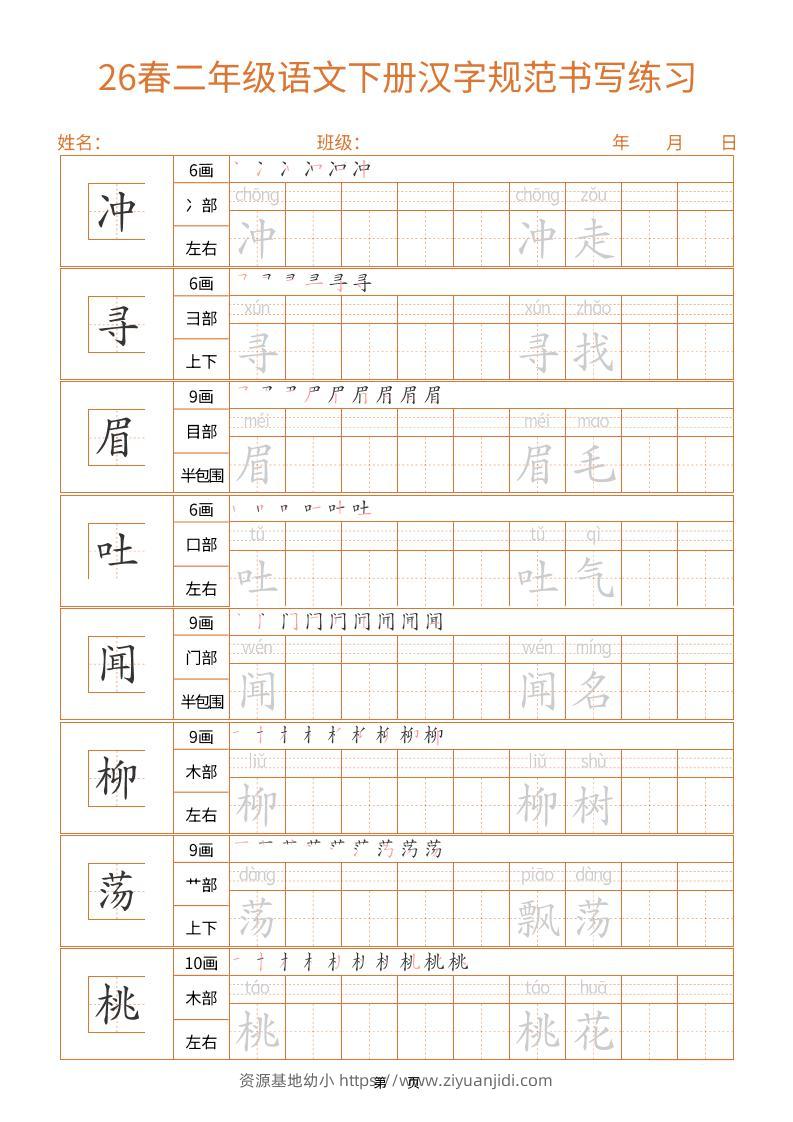 26春二年级语文下册汉字规范书写练习
姓名： 班级： 年 月 日
冲 6画 丶 冫 冲
冫部 chōng chōng zǒu
左右 冲 冲 走
寻 6画 寻 寻
彐部 xún xún zhǎo
上下 寻 寻 找
眉 9画 眉 眉 眉
目部 méi méi mao
半包围 眉 眉 毛
吐 6画 吐
口部 tǔ tǔ qì
左右 吐 吐 气
闻 9画 门 闻 闻
门部 wén wén míng
半包围 闻 闻 名
柳 9画 一 十 才 木 柳 柳
木部 liǔ liǔ shù
左右 柳 柳 树
荡 9画 一 艹 荡 荡
艹部 dàng piāo dàng
上下 荡 飘 荡
桃 10画 一 十 才 木 桃 桃 桃
木部 táo táo huā
左右 桃 桃 花
资源基地幼小 https://www.ziyuanjidi.com
第 页